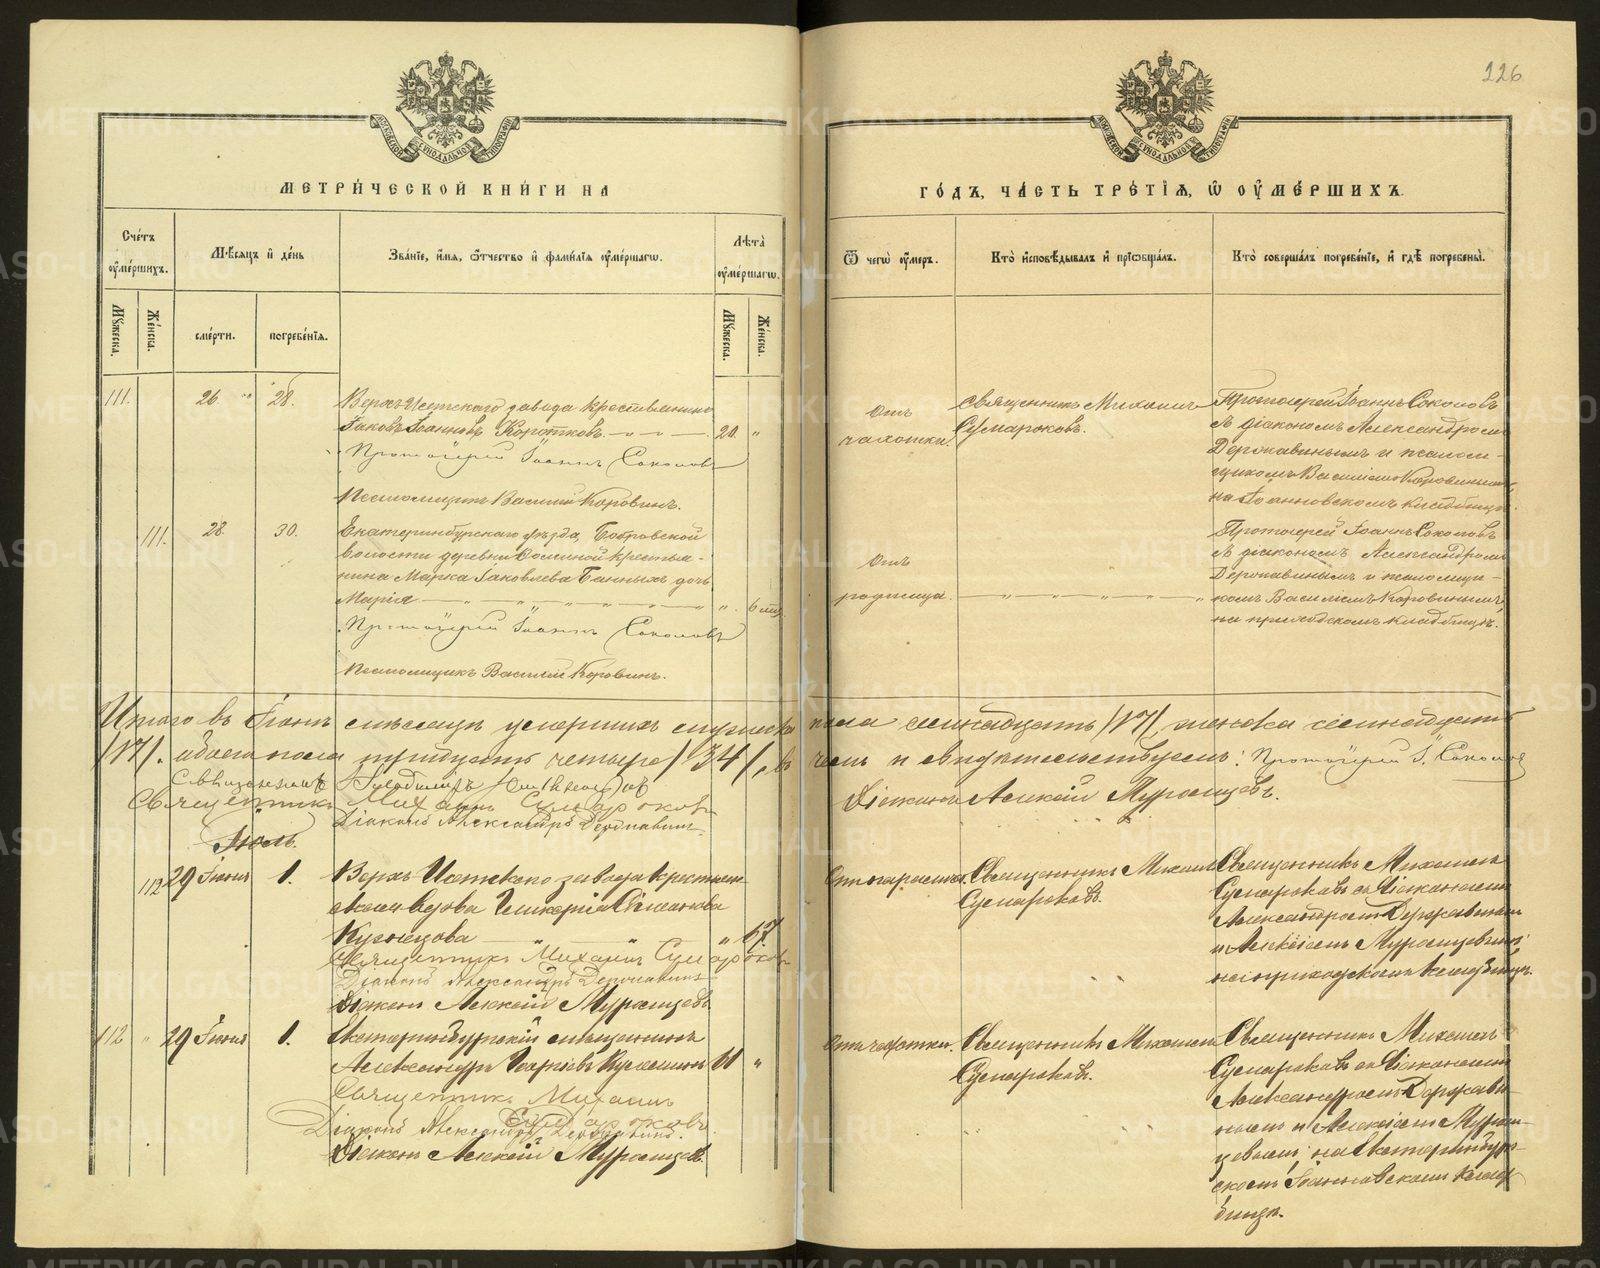 226
МЕТРИ́ЧЕСКОЙ КНИ́ГИ НА
ГО́ДЪ, ЧА́СТЬ ТРЕ́ТІѦ, Ѡ҆ ОУ҆МЕ́РШИХЪ.
Сче́тъ оу҆ме́ршихъ.
Мѣ́сѧцъ и҆ де́нь
Зва́нїе, и҆́мѧ, ѻ҆́тчество и҆ фами́лїѧ оу҆ме́ршагѡ.
Лѣ́та̀ оу҆ме́ршагѡ.
Ѿ чегѡ̀ оу҆́меръ.
Кто̀ и҆сповѣ́дывалъ и҆ прїѡбща́лъ.
Кто̀ соверша́лъ погребе́нїе, и҆ гдѣ̀ погребены̀.
Мꙋ́жеска.
Же́нска.
сме́рти.
погребе́нїѧ.
Мꙋ́жеска.
Же́нска.
111. 26. " 28.
Верхъ-Исетскаго завода крестьянинъ
Іаковъ Іоанновъ Коротковъ. — " — " — 20. "
Протоіерей Іоаннъ Соколовъ
Псаломщикъ Василій Коровинъ.
Отъ
чахотки.
Священникъ Михаилъ
Сумароковъ.
Протоіерей Іоаннъ Соколовъ
съ діакономъ Александромъ
Державинымъ и псалом-
щикомъ Василіемъ Коровинымъ
на Іоанновскомъ кладбищѣ.
111. 28. 30.
Екатеринбургскаго уѣзда, Бобровской
волости деревни крестья-
нина Марка Іаковлева Банныхъ дочь
Марія — " — " — " — " — " — " " 6
Протоіерей Іоаннъ Соколовъ
Псаломщикъ Василій Коровинъ.
Отъ
родимца.
— " — " — " — "
Протоіерей Іоаннъ Соколовъ
съ діакономъ Александромъ
Державинымъ и псаломщи-
комъ Василіемъ Коровинымъ,
на приходскомъ кладбищѣ.
Итого въ Іюнѣ мѣсяцѣ умершихъ мужеска пола семнадцать /17/, женска семнадцать
/17/. обоего пола тридцать четыре /34/, въ чемъ и свидѣтельствуемъ: Протоіерей І. Соколовъ
Священникъ
Священникъ Михаилъ Сумароковъ
Діаконъ Александръ Державинъ
Діаконъ Алексій Муромцевъ.
Іюль.
112 29 Іюня 1.
Верхъ-Исетскаго завода крестьян-
ская вдова Гликерія
Кузнецова — " — " — " 67.
Священникъ Михаилъ Сумароковъ
Діаконъ Александръ Державинъ
Діаконъ Алексій Муромцевъ.
Отъ старости.
Священникъ Михаилъ
Сумароковъ.
Священникъ Михаилъ
Сумароковъ съ діаконами
Александромъ Державинымъ
и Алексіемъ Муромцевымъ
на приходскомъ кладбищѣ.
112 " 29 Іюня 1.
Екатеринбургскій мѣщанинъ
Александръ 61 "
Священникъ Михаилъ
Сумароковъ.
Діаконъ Александръ Державинъ.
Діаконъ Алексій Муромцевъ.
Отъ чахотки.
Священникъ Михаилъ
Сумароковъ.
Священникъ Михаилъ
Сумароковъ съ діаконами
Александромъ Держави-
нымъ и Алексіемъ Муром-
цевымъ, на Екатеринбург-
скомъ Іоанновскомъ клад-
бищѣ.